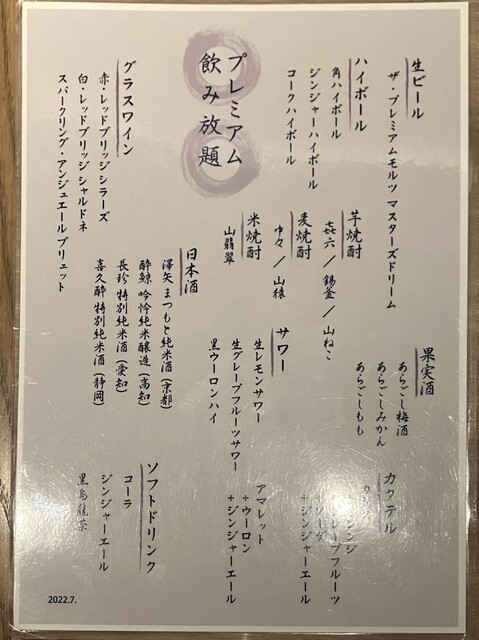 プレミアム
飲み放題
生ビール
ザ・プレミアムモルツ マスターズドリーム
ハイボール
角ハイボール
ジンジャーハイボール
コークハイボール
グラスワイン
赤・レッドブリッジシラーズ
白・レッドブリッジシャルドネ
スパークリング・アンジュエールブリュット
芋焼酎
㐂六／錫釜／山ねこ
麦焼酎
中々／山猿
米焼酎
山翡翠
日本酒
澤矢まつもと純米酒（京都）
酔鯨 吟怜純米醸造（高知）
長珍 特別純米酒（愛知）
喜久酔 特別純米酒（静岡）
果実酒
あらごし梅酒
あらごしみかん
あらごしもも
サワー
生レモンサワー
生グレープフルーツサワー
黒ウーロンハイ
カクテル
レープフルーツ
アマレット
+ウーロン
+ジンジャーエール
+ジンジャーエール
ソフトドリンク
コーラ
ジンジャーエール
黒烏龍茶
2022.7.